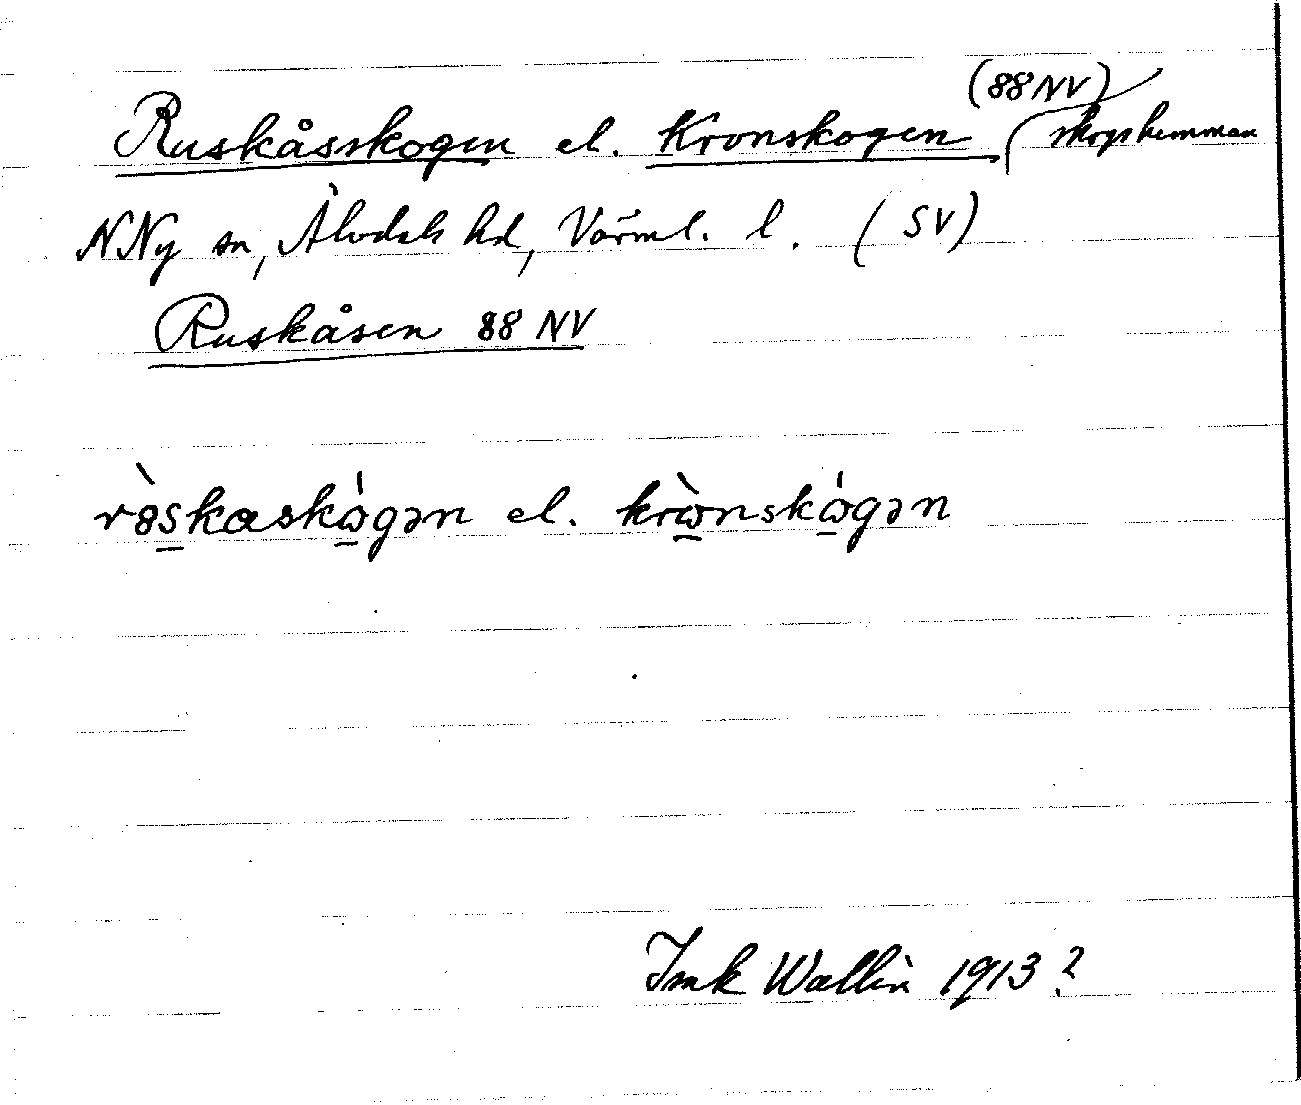 (88 NV)
Ruskåsskogen el. Kronskogen skogshemman
N Ny sn, Älvdals hd, Värml. l. (SV)
Ruskåsen 88 NV
rɵ̀skaskɷ́gən el. krɷ̀nskɷ́gən
Isak Wallin 1913?